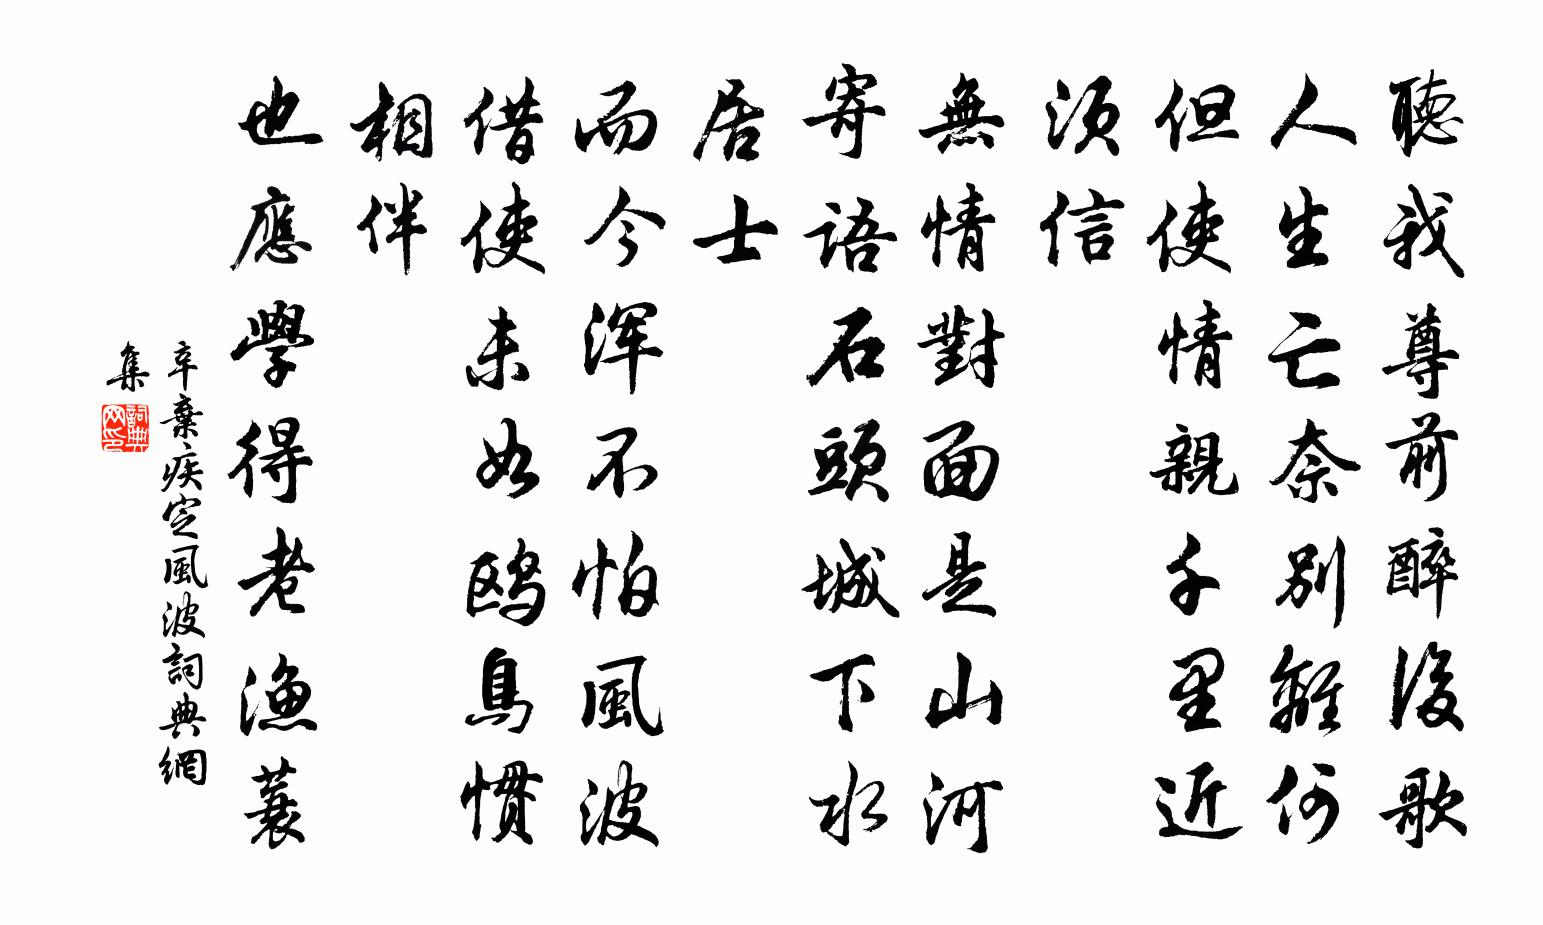 聽我尊前醉後歌
人生亡奈別離何
但使情親千里近
須信
無情對面是山河
寄語石頭城下水
居士
而今渾不怕風波
借使未如鷗鳥慣
相伴
也應學得老漁蓑
辛棄疾定風波詞典網
集
詞典
网印